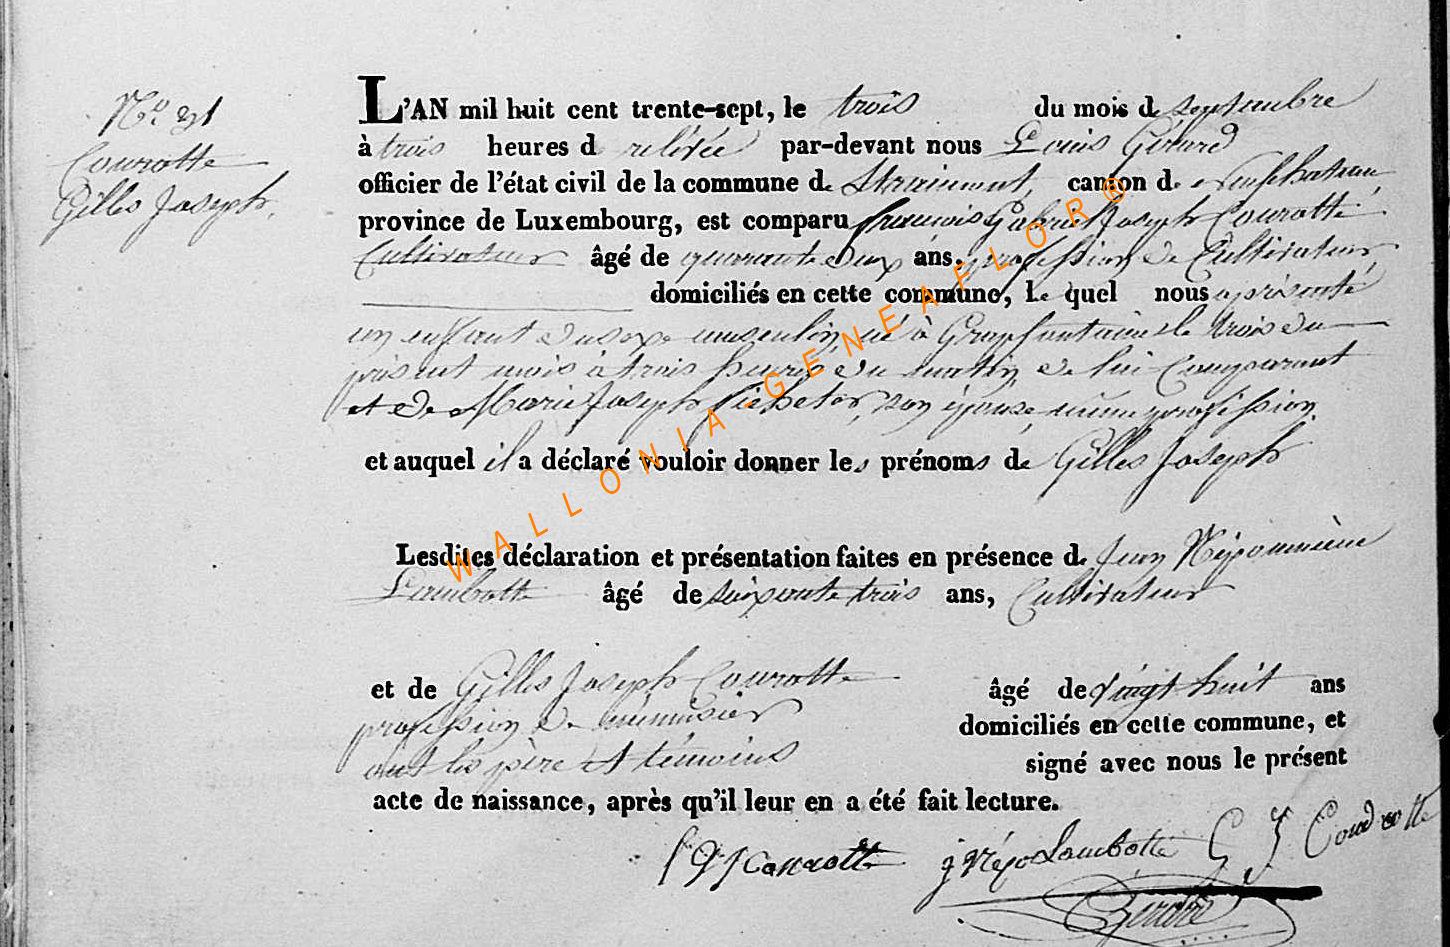 N.º 31
Courotte
Gilles Joseph.
L'AN mil huit cent trente-sept, le trois du mois de septembre
à trois heures de relévée par-devant nous Louis Gérard
officier de l'état civil de la commune de Straimont, canton de neufchateau
province de Luxembourg, est comparu francois Gabriel Joseph Courotte
Cultivateur âgé de quarante deux ans, profession de Cultivateur,
domiciliés en cette commune, Le quel nous a présenté
un enfant du sexe masculin, né à Grapfontaine le trois du
présent mois à trois heures du matin de lui Comparant
et de Marie Joseph son épouse, même profession.
et auquel il a déclaré vouloir donner les prénoms de Gilles Joseph
Lesdites déclaration et présentation faites en présence de Jean Népomucène
Lambotte âgé de soixante trois ans, Cultivateur
et de Gilles Joseph Courotte âgé de vingt huit ans
profession de menuisier domiciliés en cette commune, et
ont les père et témoins signé avec nous le présent
acte de naissance, après qu'il leur en a été fait lecture.
Courotte j Népo Lambotte G J Courotte
Gerard
WALLONIA-GENEAFLOR®